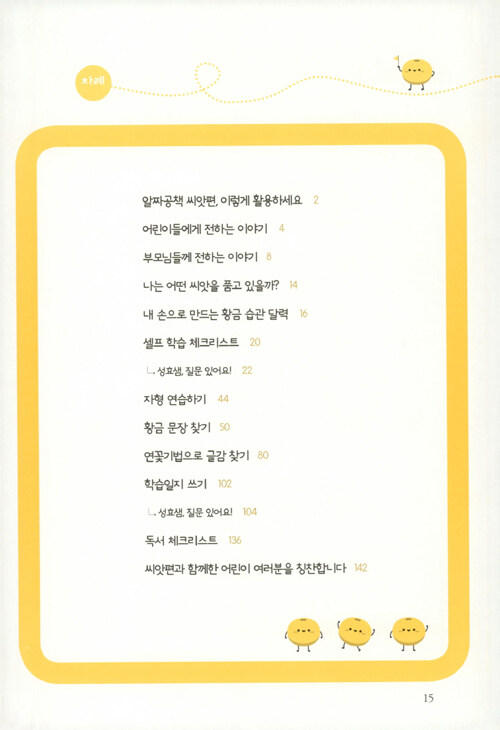 차례
알짜공책 씨앗편, 이렇게 활용하세요 2
어린이들에게 전하는 이야기 4
부모님들께 전하는 이야기 8
나는 어떤 씨앗을 품고 있을까? 14
내 손으로 만드는 황금 습관 달력 16
셀프 학습 체크리스트 20
ㄴ성효샘, 질문 있어요! 22
자형 연습하기 44
황금 문장 찾기 50
연꽃기법으로 글감 찾기 80
학습일지 쓰기 102
ㄴ성효샘, 질문 있어요! 104
독서 체크리스트 136
씨앗편과 함께한 어린이 여러분을 칭찬합니다 142
15